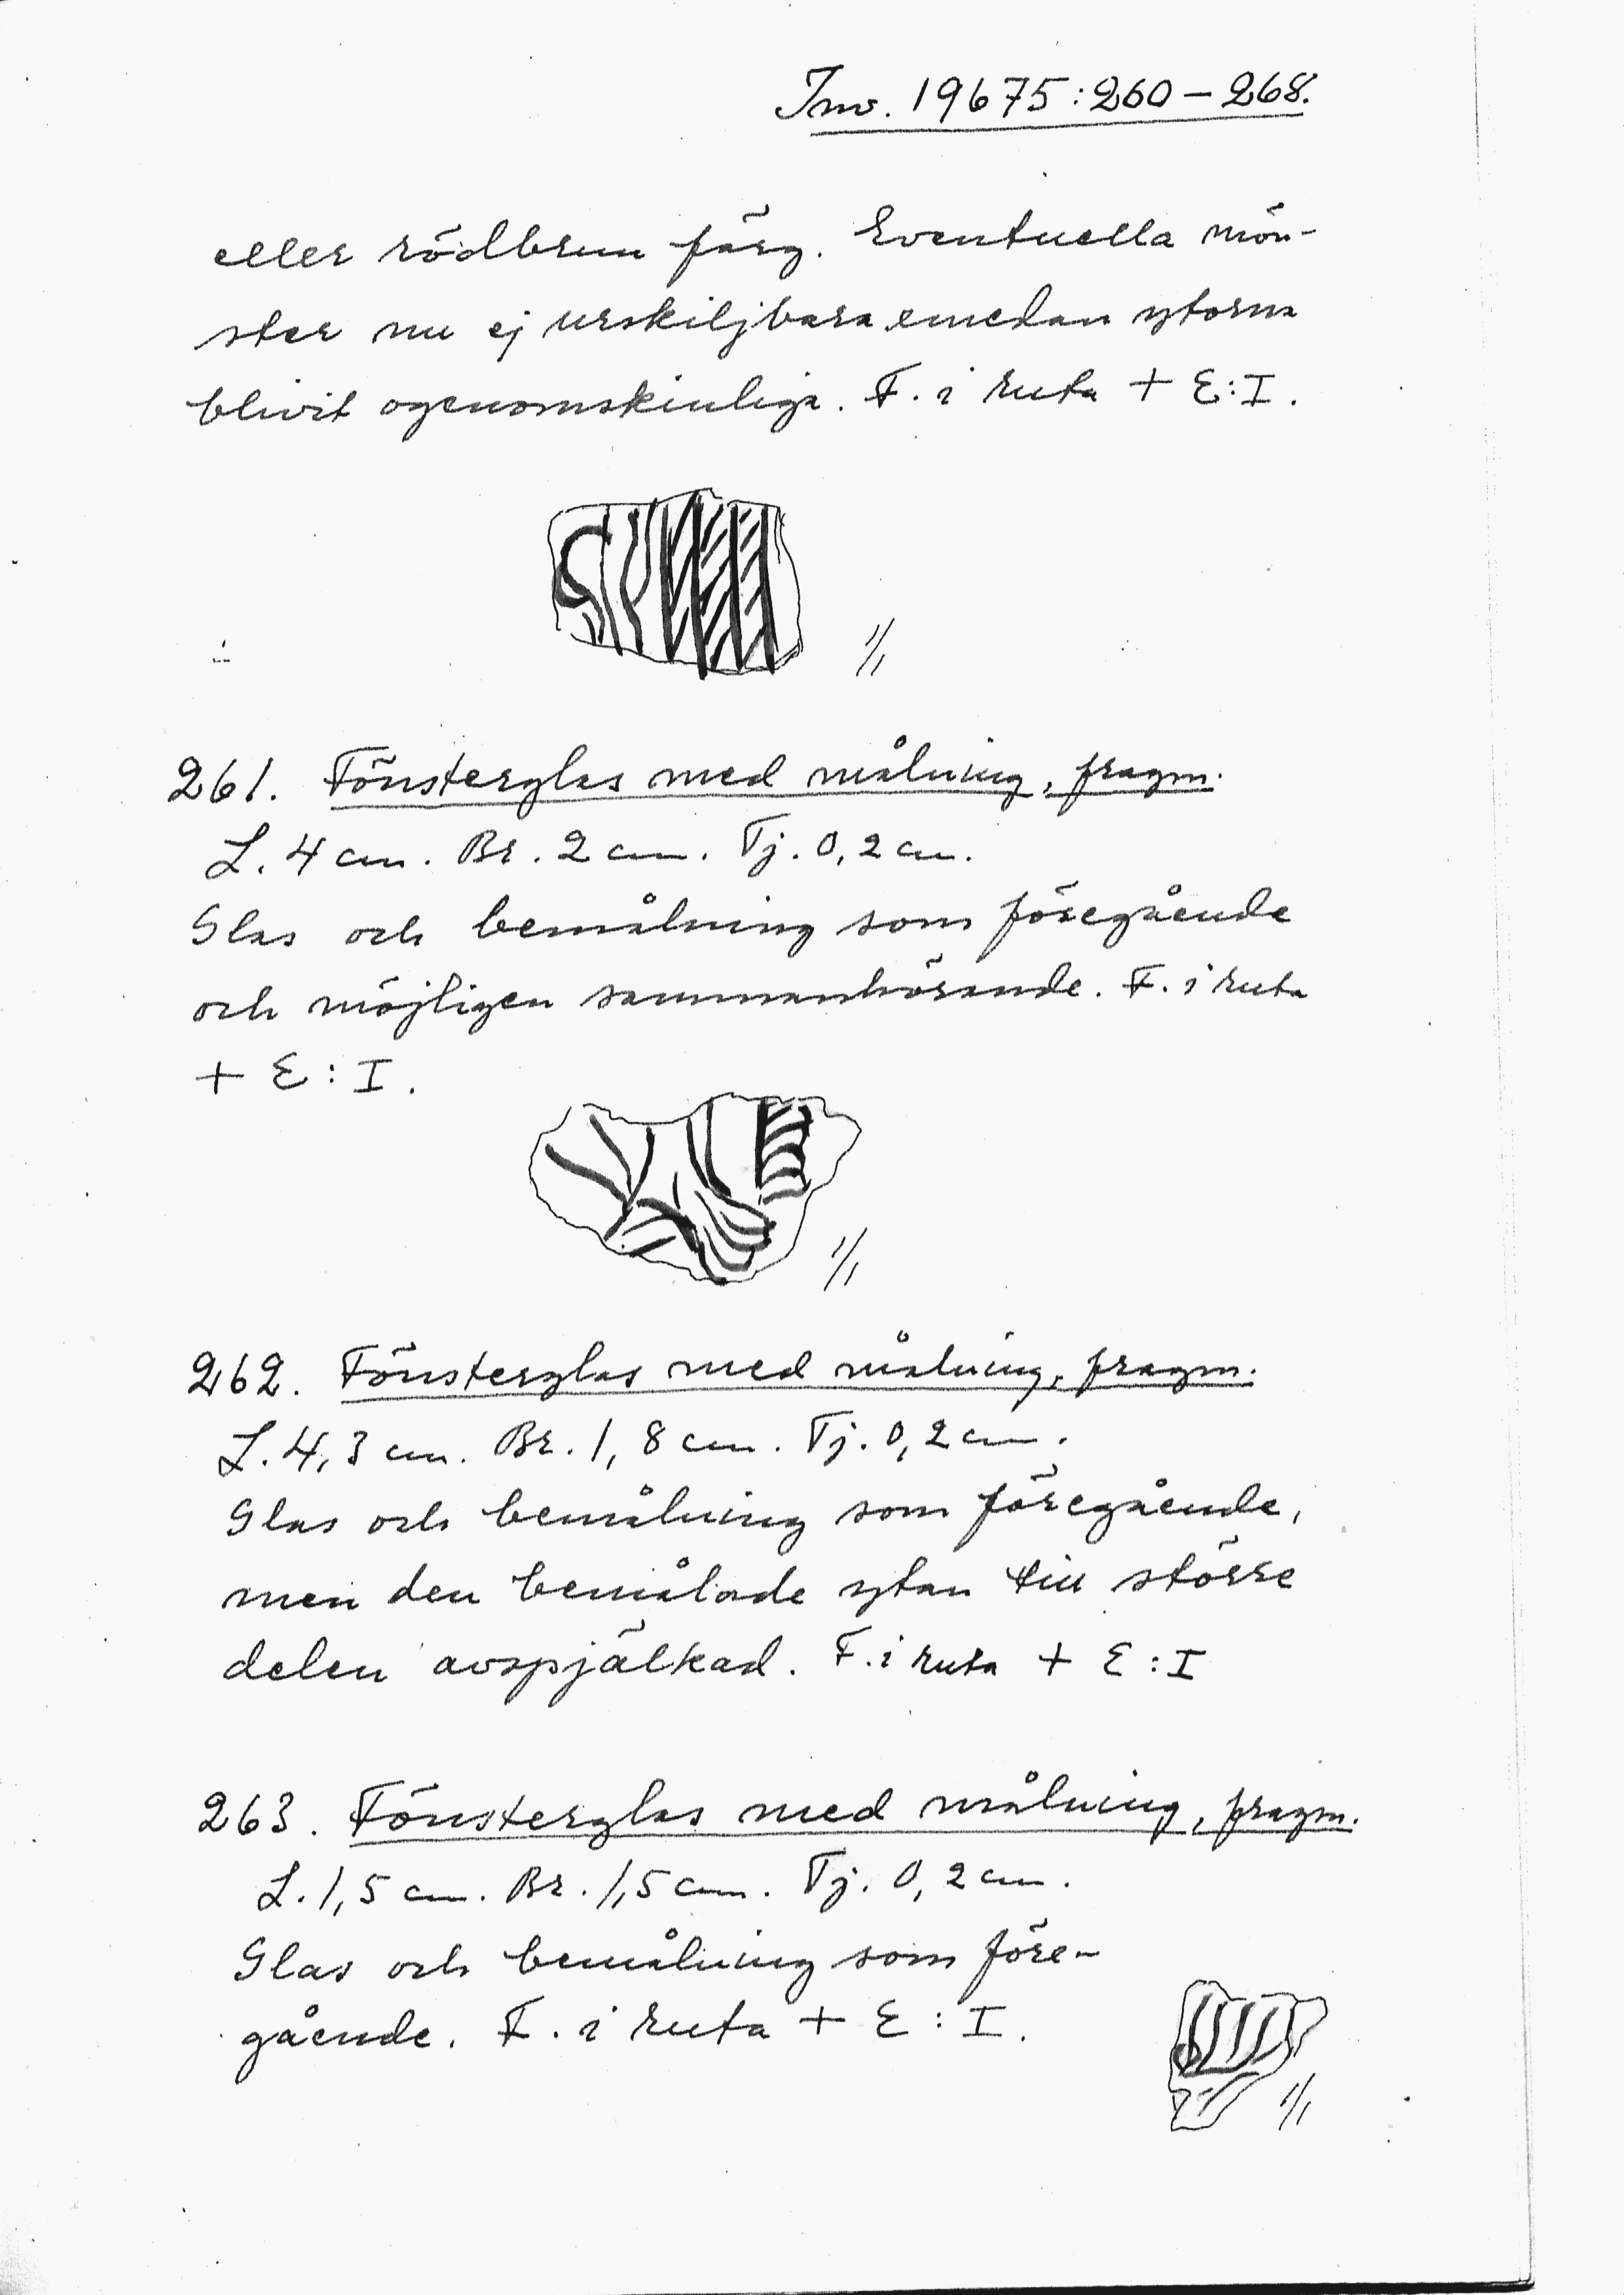 Inv. 19675:260-268.
eller rödbrun färg. Eventuella mön-
ster nu ej urskiljbara emedan ytorna
blivit ogenomskinliga. F. i ruta + E:I.
1/1
261. Fönsterglas med målning, fragm.
L. 4 cm. Br. 2 cm. Tj. 0,2 cm.
Glas och bemålning som föregående
och möjligen sammanhörande. F. i ruta
+ E: I.
1/1
262. Fönsterglas med målning, fragm.
L. 4,3 cm. Br. 1,8 cm. Tj. 0,2 cm.
Glas och bemålning som föregående,
men den bemålade ytan till större
delen avspjälkad. F. i ruta + E:I
263. Fönsterglas med målning, fragm.
L. 1,5 cm. Br. 1,5 cm. Tj. 0,2 cm.
Glas och bemålning som före-
gående. F. i ruta + E: I.
1/1